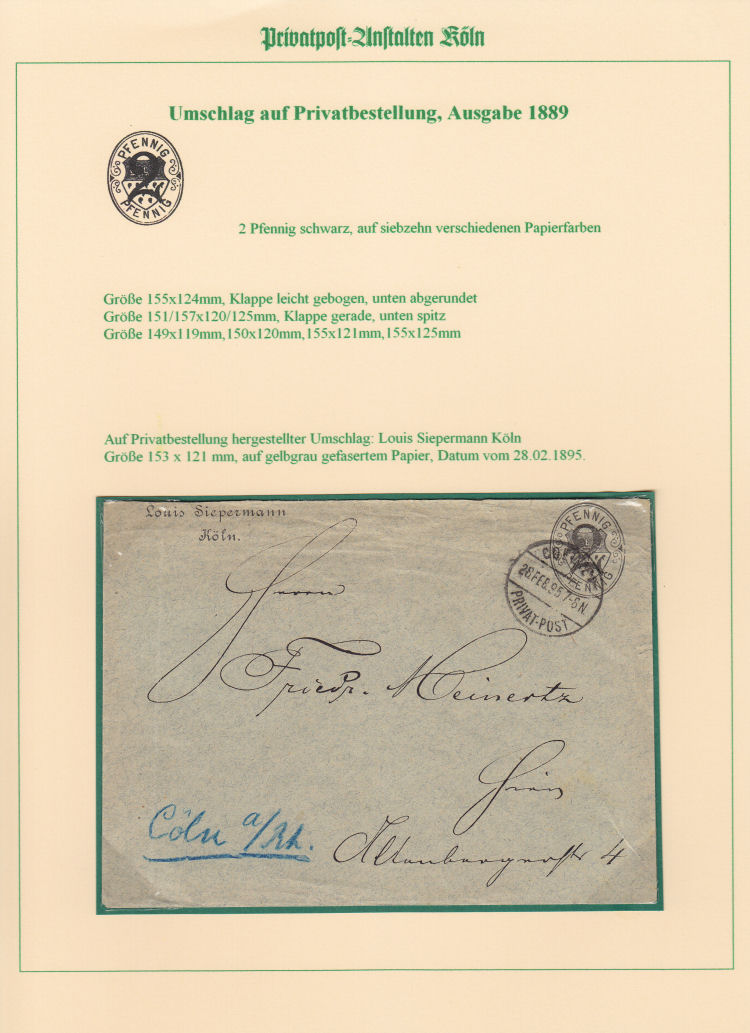 Privatpost-Anstalten Köln
Umschlag auf Privatbestellung, Ausgabe 1889
PFENNIG
2
PFENNIG
2 Pfennig schwarz, auf siebzehn verschiedenen Papierfarben
Größe 155x124mm, Klappe leicht gebogen, unten abgerundet
Größe 151/157x120/125mm, Klappe gerade, unten spitz
Größe 149x119mm,150x120mm,155x121mm,155x125mm
Auf Privatbestellung hergestellter Umschlag: Louis Siepermann Köln
Größe 153 x 121 mm, auf gelbgrau gefasertem Papier, Datum vom 28.02.1895.
Louis Siepermann
Köln.
PFENNIG
2
PFENNIG
28.FEB.95.7-8N.
PRIVAT-POST
Herrn
Friedr. Meinertz
Hier
Cöln a/Rh.
Altenbergerstr 4